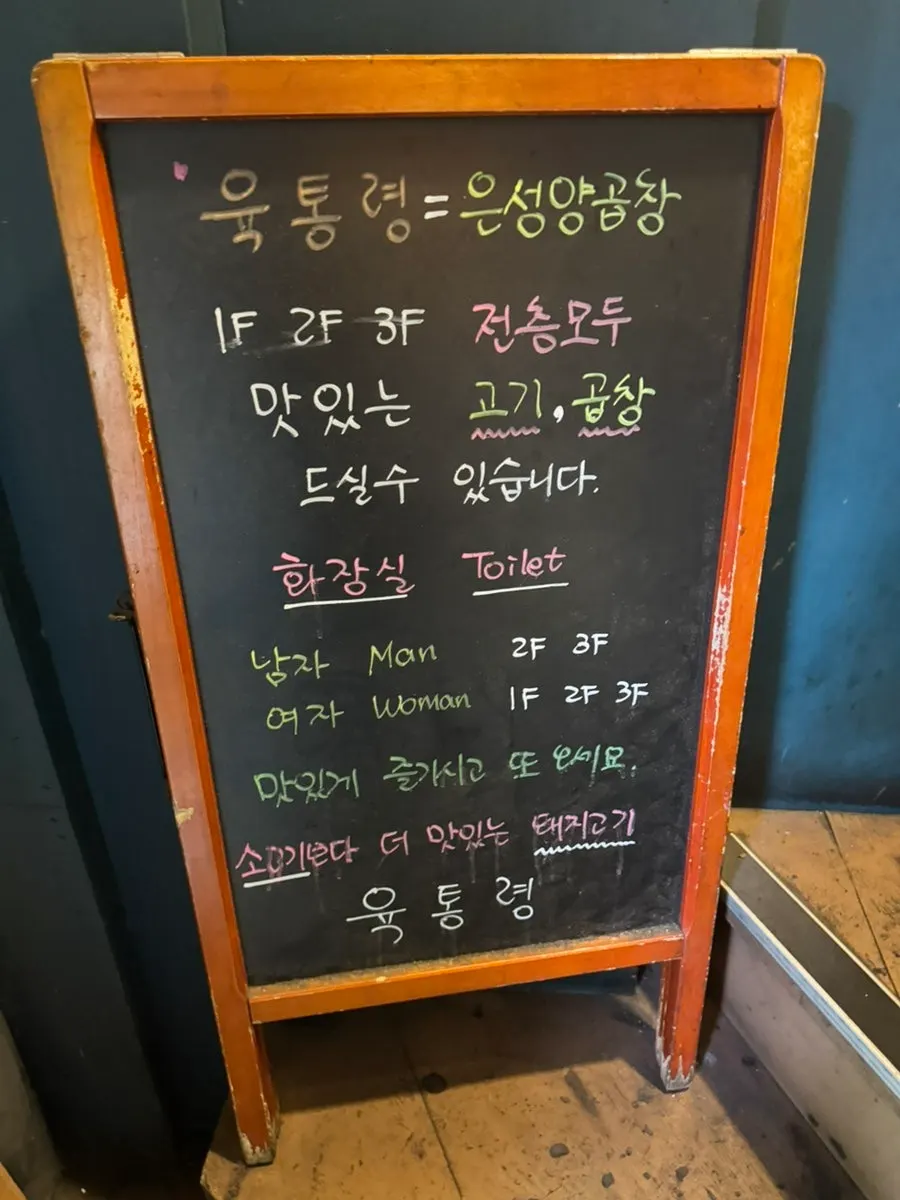 육통령=은성양곱창
1F 2F 3F 전층모두
맛있는 고기,곱창
드실수 있습니다.
화장실 Toilet
남자 Man 2F 3F
여자 Woman 1F 2F 3F
맛있게 즐기시고 또 오세요.
소고기보다 더 맛있는 돼지고기
육통령